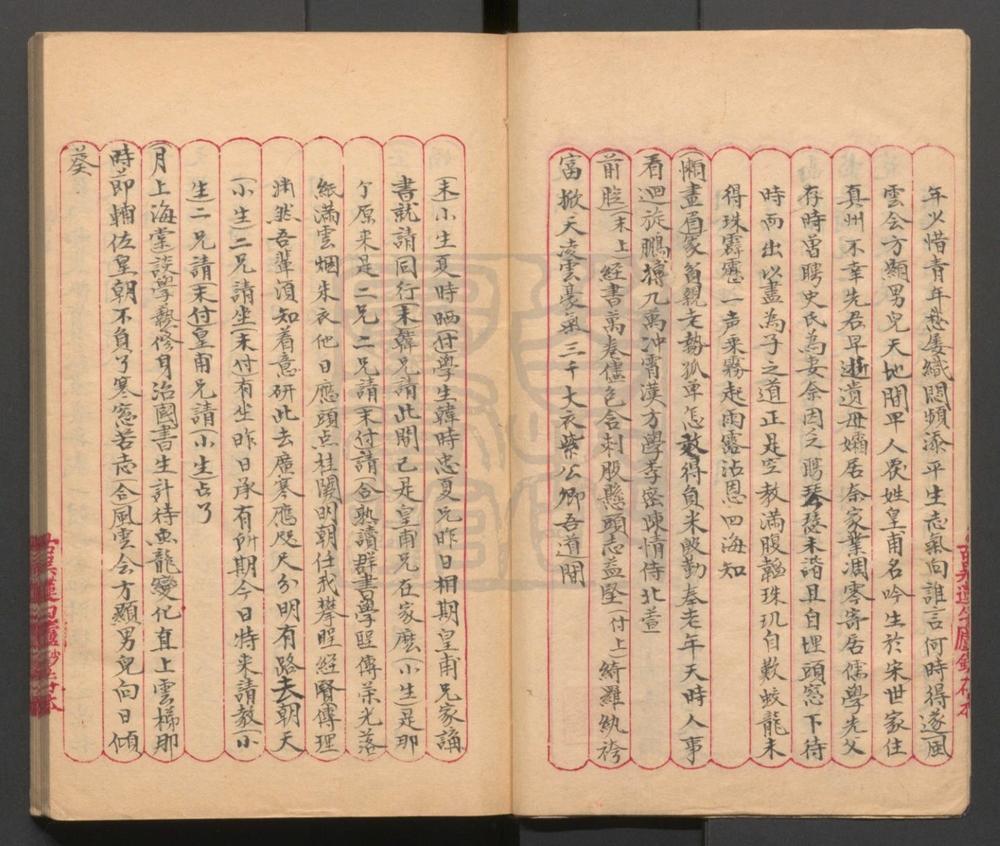 年少惜青年愁屡織悶頻添平生志氣向誰言何時得遂風
雲会方顯男兒天地間畢人衆姓皇甫名吟生於宋世家住
真州不幸先君早逝遺母孀居奈家業凋零寄居儒學先父
存時曽聘史氏為妻余因之聘琴瑟未諧且自埋頭窓下待
時而出以盡為子之道正是空教滿腹韞珠玑自歎蛟龍未
得珠霹靂一声乗霧起雨露沾恩四海知
懶畫眉家貧親老勢孤单怎敢得負米殷勤奉老年天時人事
看迴旋鵬摶九萬冲霄漢方學李密陳情侍北萱
前腔(末上)經書萬卷儘包含刺股懸頭志益堅(付上)綺羅紈袴
富掀天凌雲豪氣三千大衣紫公卿吾道間
(末小生夏時晒(付學生韓時忠夏兄昨日相期皇甫兄家誦
書就請同行(末韓兄請此間己是皇甫兄在家麽(小生)是那
个原来是二兄二兄請(末付請(合熟讀群書學聖傳榮光落
紙滿雲烟朱衣他日應頭点桂闕明朝任我攀聖經賢傳理
淵然吾輩須知着意研此去廣寒應咫尺分明有路去朝天
(小生)二兄請坐(末付)有坐昨日承有所期今日特来請教(小
生)二兄請(末付皇甫兄請(小生)占了
月上海棠談學藝修身治國書生計待魚龍變化直上雲梯那
時節輔佐皇朝不負了寒窓若志(合風雲会方顯男兒向日傾
葵